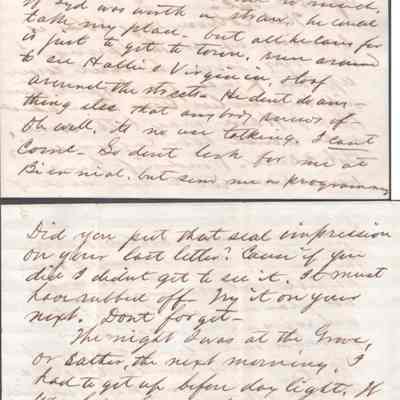 If Syd was worth a straw, he could
take my place – but all he cares for
is just to get to town, run around
to see Hallie & Virginia, & loaf
around the streets. He dont do any-
thing else that anybody knows of
Oh well, its no use talking, I cant
Come – So dont look for me at
Biennial, but send me a programme
Did you put that seal impression
on your last letter? Cause if you
did I didnt get to see it. It must
have rubbed off – Try it on your
next. Dont forget –
The night I was at the Grove,
or rather, the next morning, I
had to get up before day light. It